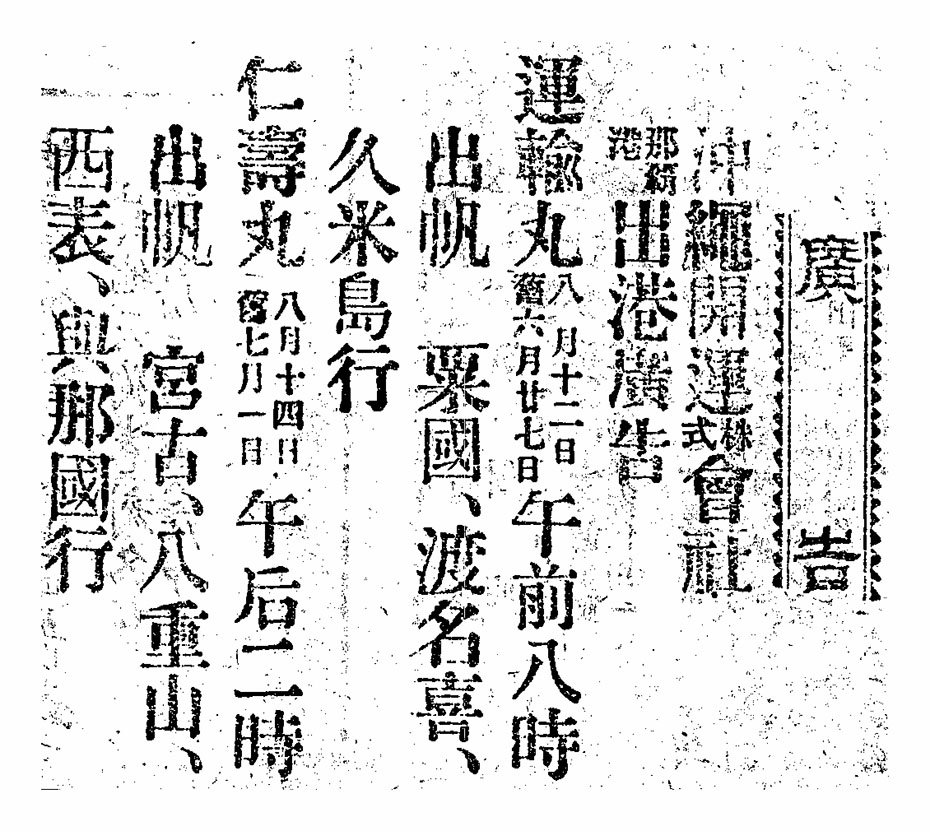 廣告
沖繩開運株式會社
那覇港出港廣告
運輸丸 八月十二日 舊六月廿七日 午前八時
出帆 粟國、波名喜、
久米島行
仁壽丸 八月十四日 舊七月一日 午后二時
出帆 宮古、八重山、
西表、與那國行